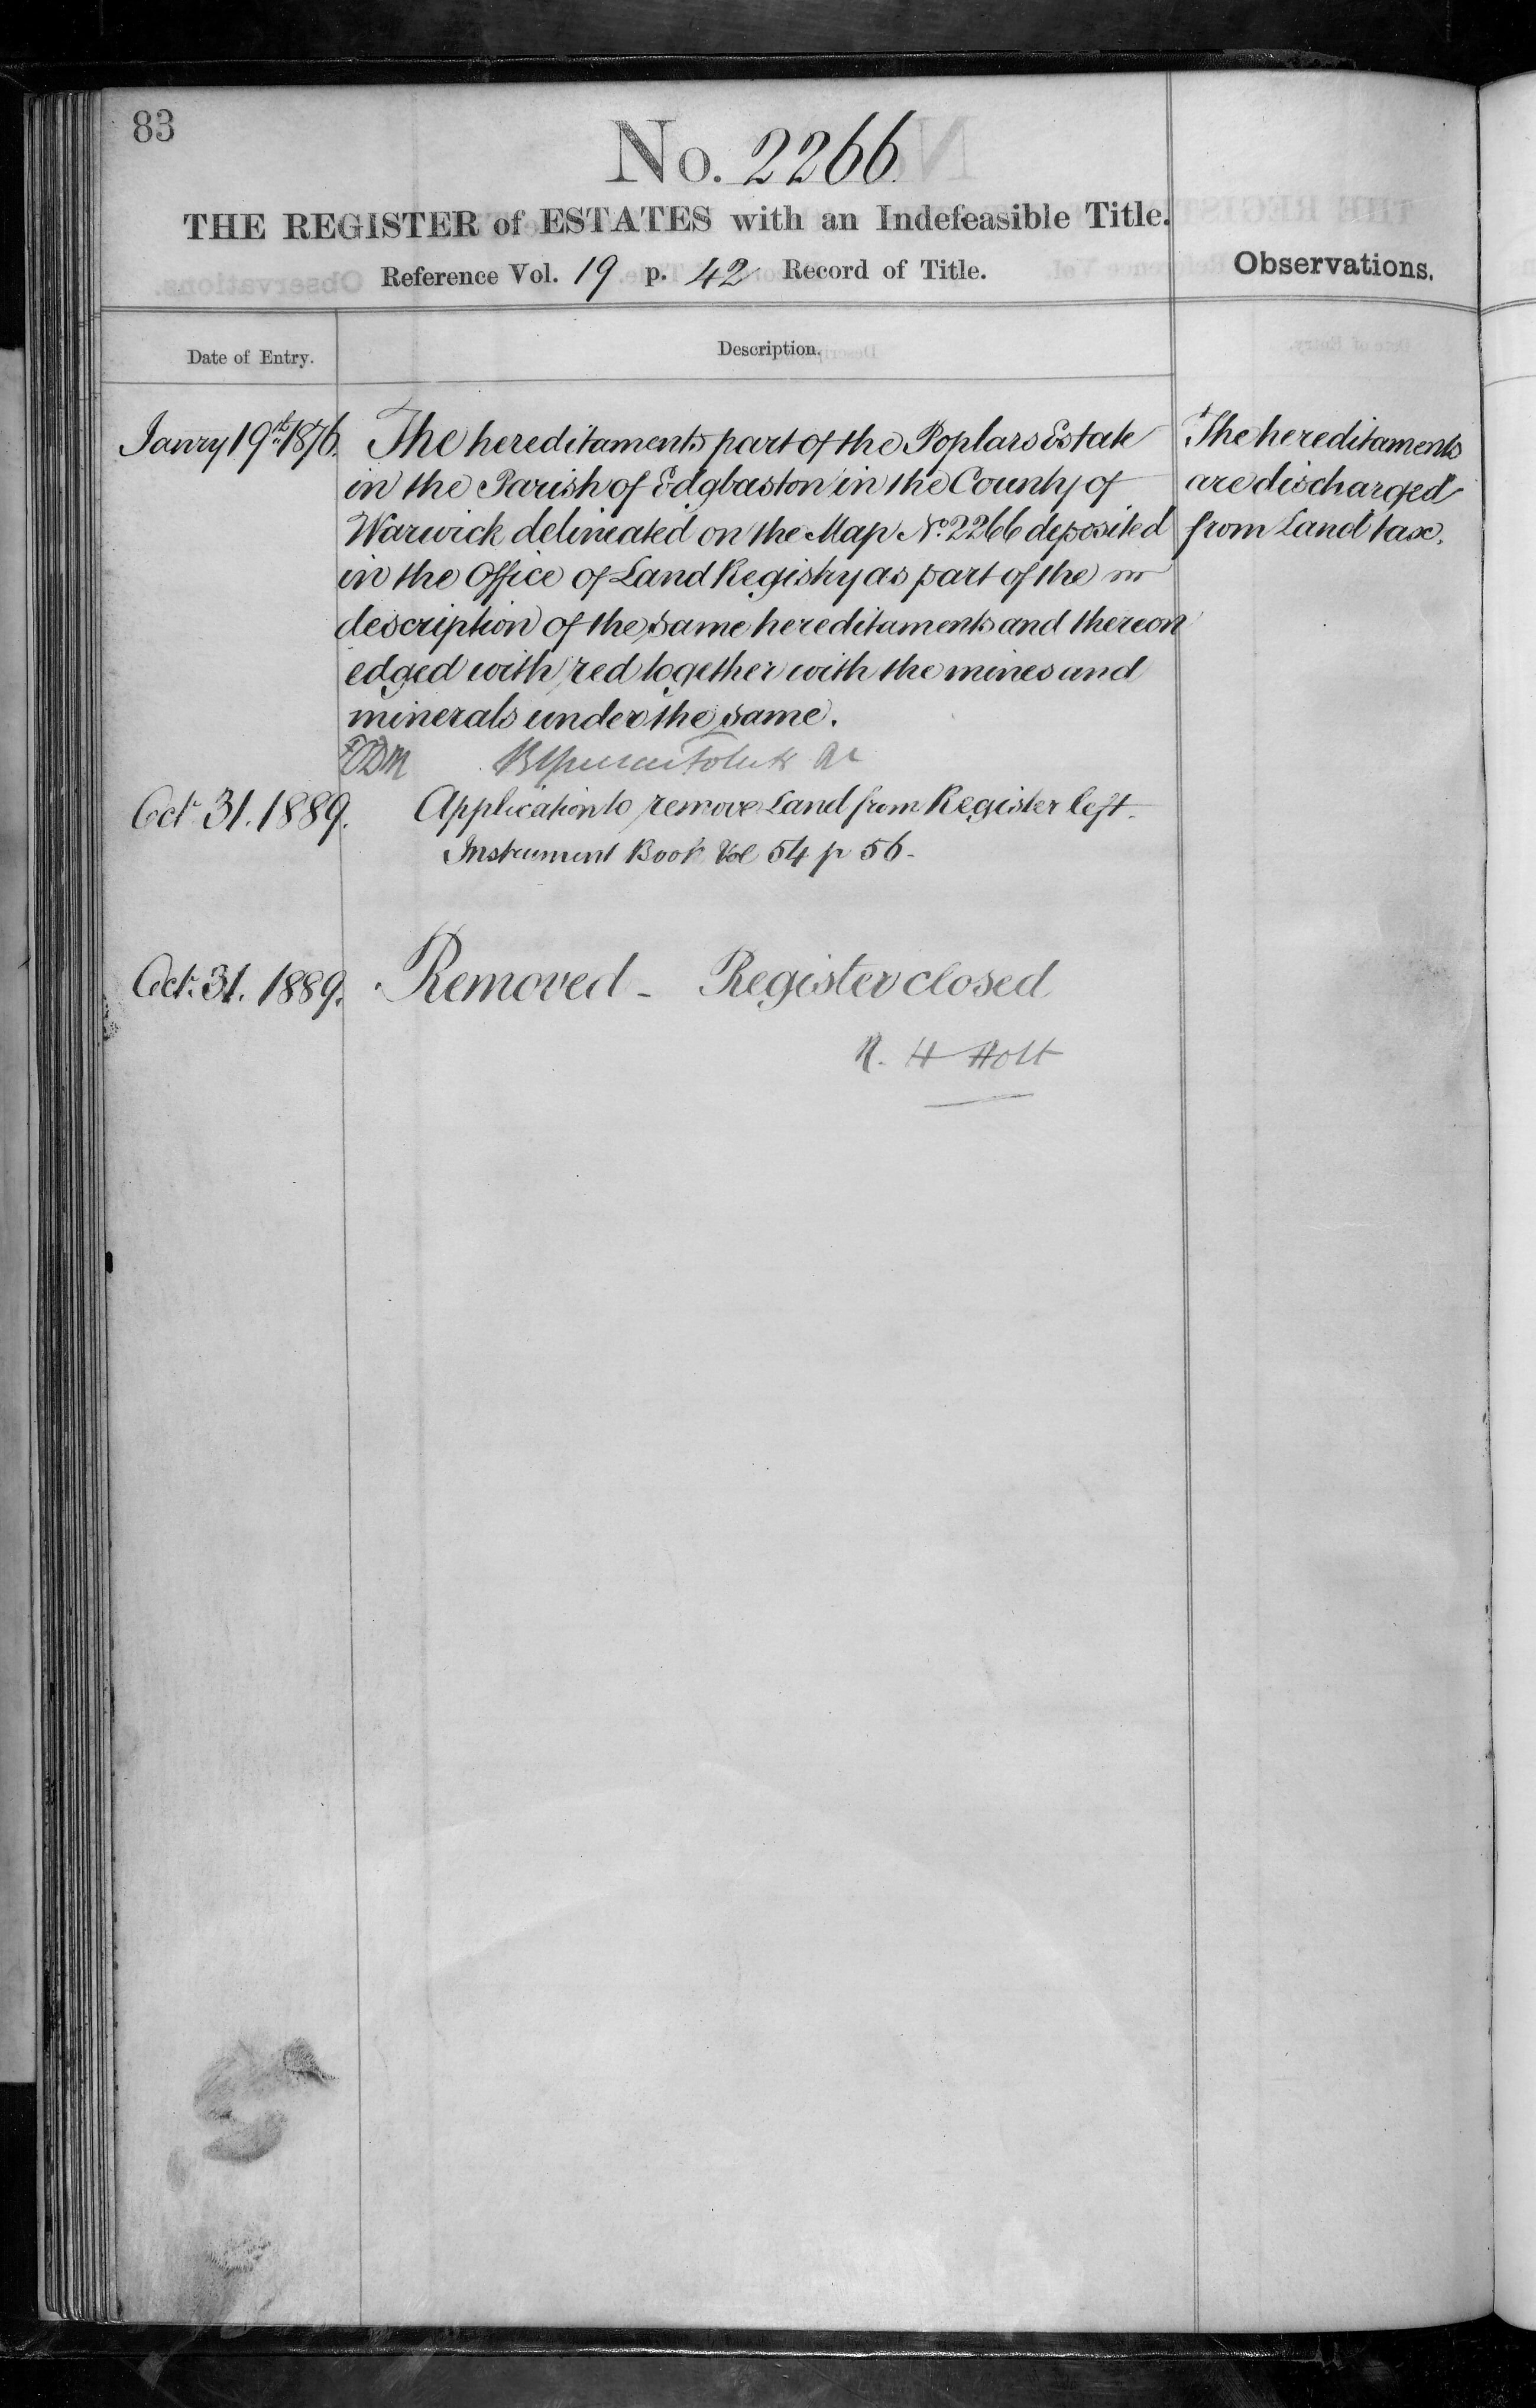 83
No. 2266
THE REGISTER of ESTATES with an Indefeasible Title.
Reference Vol. 19 p. 42 Record of Title.
Observations.
Date of Entry.
Description.
Janry 19th 1876. The hereditaments part of the Poplars Estate
in the Parish of Edgbaston in the County of
Warwick delineated on the Map No. 2266 deposited
in the Office of Land Registry as part of the
description of the same hereditaments and thereon
edged with red together with the mines and
minerals under the same.
The hereditaments
are discharged
from Land tax.
Oct. 31. 1889. Application to remove Land from Register left.
Instrument Book Vol 54 p 56.
Oct. 31. 1889. Removed - Register closed
R. H Holt